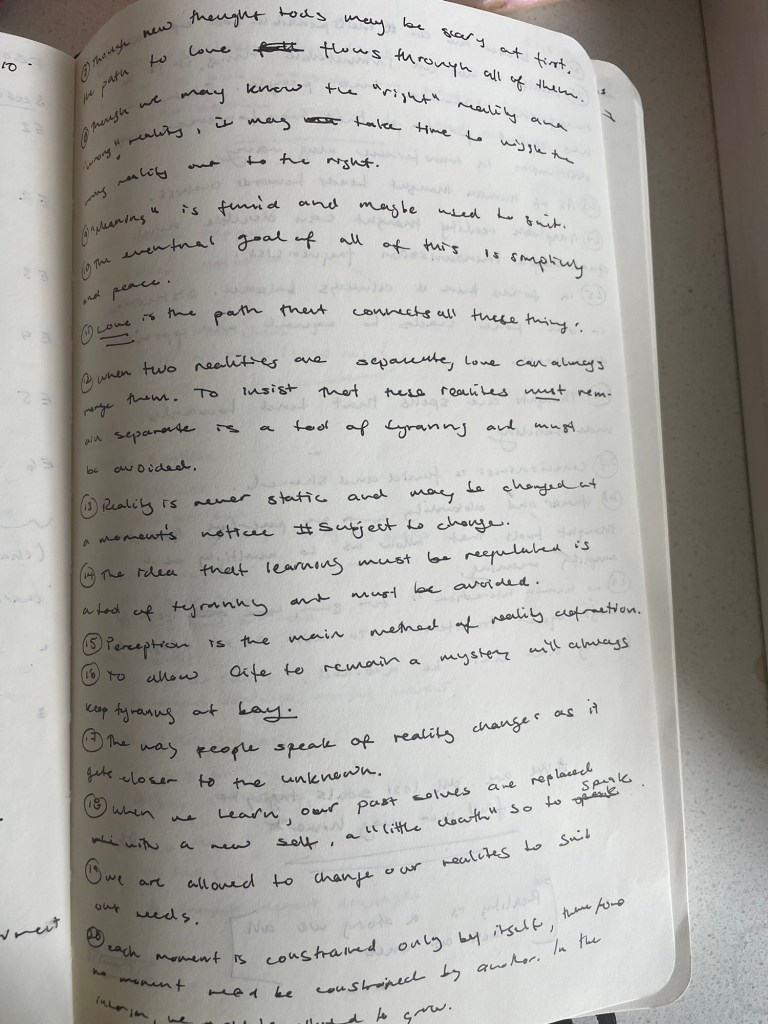 ⑦ Though new thought tools may be scary at first,
the path to love flows through all of them.
⑧ Though we may know the "right" reality and
"wrong" reality, it may take time to wiggle the
wrong reality out to the right.
⑨ "Meaning" is fluid and maybe used to suit.
⑩ The eventual goal of all of this is simplicity
and peace.
⑪ Love is the path that connects all these things.
⑫ when two realities are separate, love can always
merge them. To insist that these realities must rem-
ain separate is a tool of tyranny and must
be avoided.
⑬ Reality is never static and may be changed at
a moment's notice #Subject to change.
⑭ The idea that learning must be regulated is
a tool of tyranny and must be avoided.
⑮ Perception is the main method of reality
⑯ To allow life to remain a mystery will always
keep tyranny at bay.
⑰ The way people speak of reality changes as it
gets closer to the unknown.
⑱ when we learn, our past selves are replaced
with a new self, a "little death" so to speak.
⑲ we are allowed to change our realities to suit
our needs.
⑳ each moment is constrained only by itself,
no moment need be constrained by another. In the
we to grow.
10.